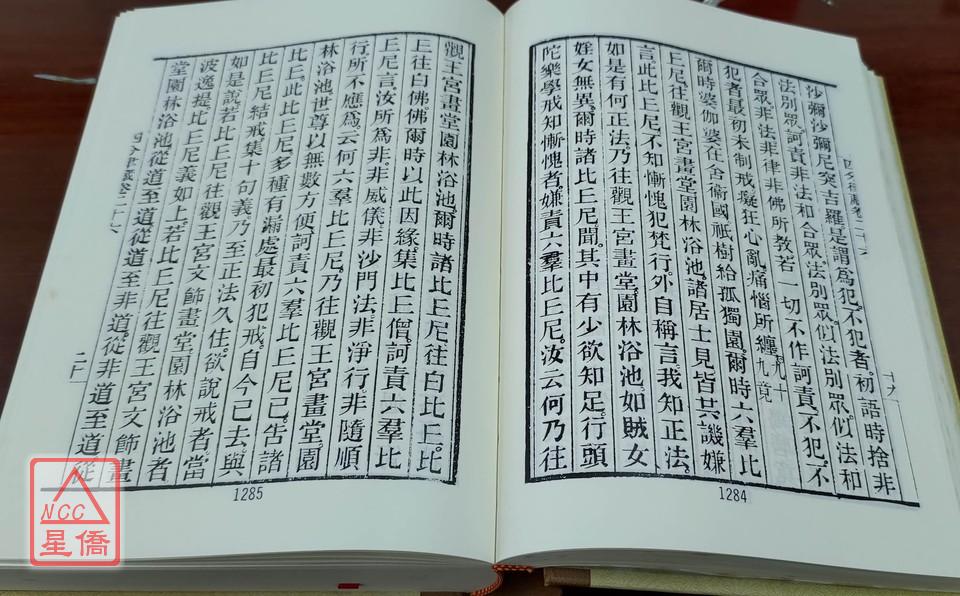 沙彌沙彌尼突吉羅是謂為犯不犯者初語時捨非
法別眾訶責非法和合眾法別眾似法別眾似法和
合眾非法非律非佛所教若一切不作訶責不犯不
犯者最初未制戒癡狂心亂痛惱所纏九十九竟
爾時婆伽婆在舍衛國祇樹給孤獨園爾時六羣比
丘尼往觀王宮畫堂園林浴池諸居士見皆共譏嫌
言此比丘尼不知慚愧犯梵行外自稱言我知正法
如是有何正法乃往觀王宮畫堂園林浴池如賊女
婬女無異爾時諸比丘尼聞其中有少欲知足行頭
陀樂學戒知慚愧者嫌責六羣比丘尼汝云何乃往
十九
1284
觀王宮畫堂園林浴池爾時諸比丘尼往白比丘比
丘往白佛佛爾時以此因緣集比丘僧訶責六羣比
丘尼言汝所為非非威儀非沙門法非淨行非隨順
行所不應為云何六羣比丘尼乃往觀王宮畫堂園
林浴池世尊以無數方便訶責六羣比丘尼已告諸
比丘此比丘尼多種有漏處最初犯戒自今已去與
比丘尼結戒集十句義乃至正法久住欲說戒者當
如是說若比丘尼往觀王宮文飾畫堂園林浴池者
波逸提比丘尼義如上若比丘尼往觀王宮文飾畫
堂園林浴池從道至道從道至非道從非道至道從
二十
1285
NCC
星僑